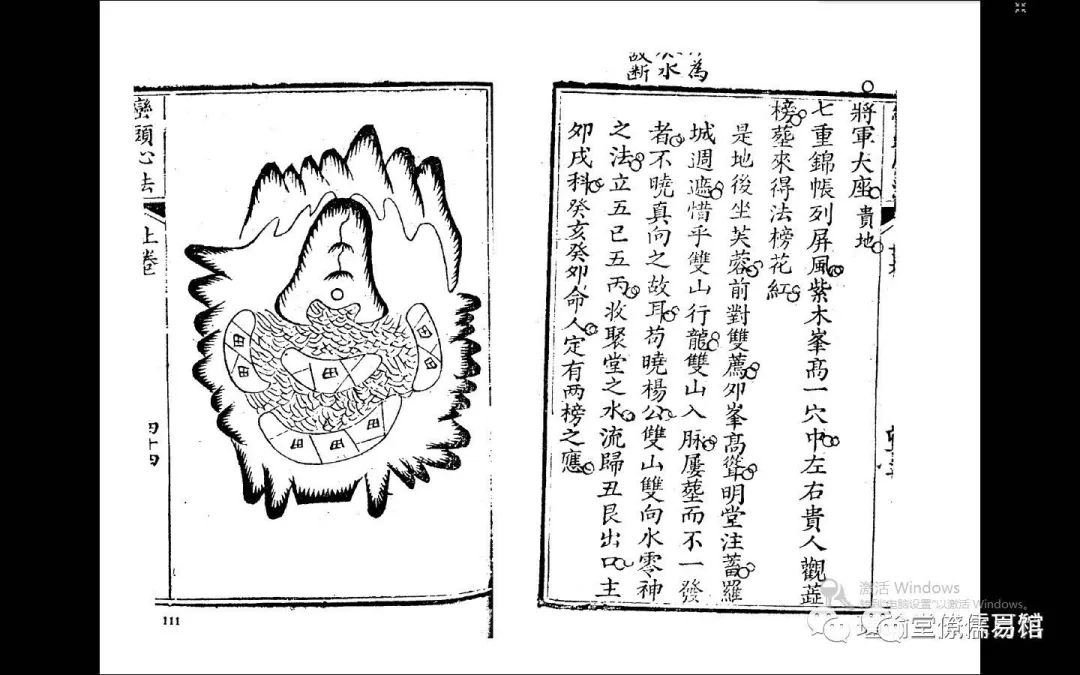 為
水
故断
將軍大座 貴地
七重錦帳列屏風紫木峯髙一穴中左右貴人觀蓋
榜塟來得法榜花紅
是地後坐芙蓉前對雙薦夘峯髙聳明堂注蓄羅
城週遮惜乎雙山行龍雙山入脉屢塟而不一發
者不曉真向之故耳苟曉楊公雙山雙向水零神
之法立五巳五丙收聚堂之水流歸丑艮出口主
夘戌科癸亥癸夘命人定有两榜之應
巒頭心法
上巻
四十四
田
田
田
田
田
田
田
田
111
激活 Windows
转到"电脑设置"以激活 Windows。
堂僚儒易馆